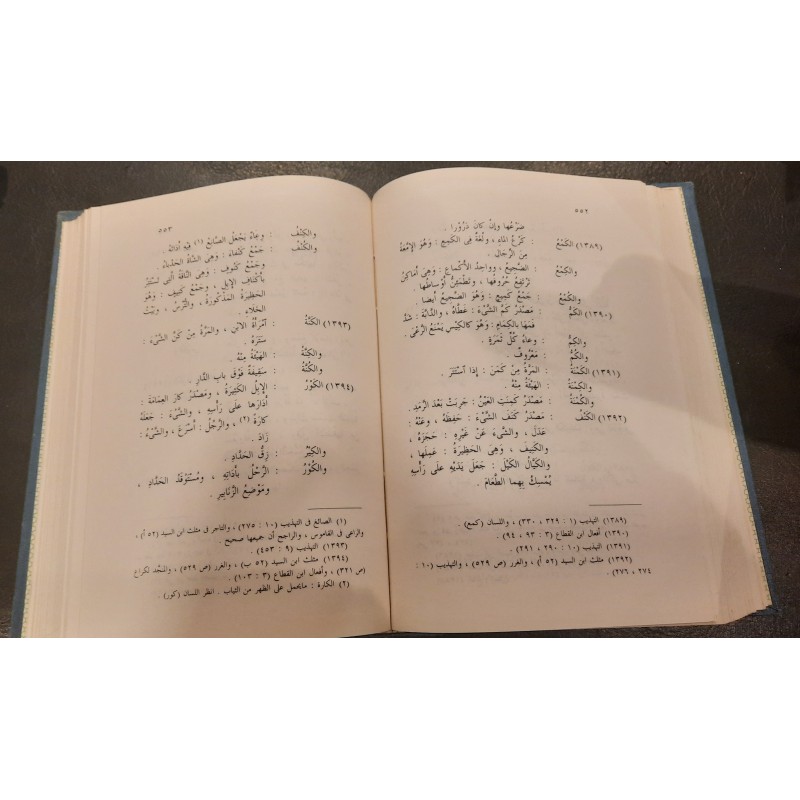 ٥٥٢
ضَرْعُها وإنْ كان دَرُورا .
(١٣٨٩) الكَمْعُ : كَرْعُ الماء ، ولُغَةٌ فى الكِمِيع : وَهُوَ الإمَّعَةُ
مِنَ الرِّجَال .
والكِمْعُ : الضَّجِيعُ ، وواحِدُ الأكْماع : وَهِىَ أماكنُ
تَرْتفِعُ حُرُوفُها ، وتَطْمَئِنُّ أوْساطُها .
والكُمْعُ : جَمْعُ كَمِيعٍ ، وَهُوَ الضَّجِيعُ أيضا .
(١٣٩٠) الكَمُّ : مَصْدَرُ كَمَّ الشَّىْءَ : غَطَّاهُ ، والدَّابَّةَ : شَدَّ
فَمَها بالكِمَامِ : وَهُوَ كالكِيْسِ يَمْنَعُ الرَّعْىَ .
والكِمُّ : وِعاءُ كُلِّ ثَمَرَةٍ .
والكُمُّ : مَعْرُوفٌ .
(١٣٩١) الكَمْنَةُ : المَرَّةُ مِنْ كَمَنَ : إذا اسْتَتَرَ .
والكِمْنَةُ : الهَيْئَةُ مِنْهُ .
والكُمْنَةُ : مَصْدَرُ كَمِنَتِ العَيْنُ : جَرِبَتْ بَعْدَ الرَّمَدِ .
(١٣٩٢) الكَنْفُ : مَصْدَرُ كَنَفَ الشَّىْءَ : حَفِظَهُ ، وعَنْهُ :
عَدَلَ ، والشَّىءَ عَنْ غَيْرِهِ : حَجَزَهُ ،
والكَنِيفَ ، وَهِىَ الحَظِيرَةُ : عَمِلَها ،
والكَيَّالُ الكَيْلَ : جَعَلَ يَدَيْهِ على رَأْسِهِ
يُمْسِكُ بِهِما الطَّعَامَ .
(١٣٨٩) التهذيب (١ : ٣٢٩ ، ٣٣٠) ، واللسان (كمع) .
(١٣٩٠) أفعال ابن القطاع (٣ : ٩٣ ، ٩٤) .
(١٣٩١) التهذيب (١٠ : ٢٩٠ ، ٢٩١) .
(١٣٩٢) مثلث ابن السيد (٥٢ أ) ، والغرر (ص ٥٢٩) ، والتهذيب (١٠ :
٢٧٤ ، ٢٧٦) .
٥٥٣
والكِنْفُ : وعاءٌ يَجْعَلُ الصَّائِعُ (١) فِيهِ أداتَهُ .
والكُنْفُ : جَمْعُ كَنْفاءَ : وَهِىَ الشَّاةُ الحَدْباءُ ،
وجَمْعُ كَنُوفٍ : وَهِىَ النَّاقَةُ الَّتِى تَسْتَتِرُ
بأكْنافِ الإبِلِ ، وجَمْعُ كَنِيفٍ : وَهُوَ
الحَظِيرَةُ المَذْكُورَةُ ، والتُّرْسُ ، وبَيْتُ
الخَلاءِ .
(١٣٩٣) الكَنَّةُ : امْرَأةُ الابْنِ ، والمَرَّةُ مِنْ كَنَّ الشَّىْءَ :
سَتَرَهُ .
والكِنَّةُ : الهَيْئَةُ مِنْهُ .
والكُنَّةُ : سَقِيفَةٌ فَوْقَ بابِ الدَّارِ .
(١٣٩٤) الكَوْرُ : الإبِلُ الكَثِيرَةُ ، ومَصْدَرُ كارَ العِمَامَةَ :
أدَارَها على رَأْسِهِ ، والشَّىْءَ : جَعَلَهُ
كارَةً (٢) ، والرَّجُلُ : أسْرَعَ ، والشَّىْءُ :
زَادَ .
والكِيْرُ : زِقُّ الحَدَّادِ .
والكُوْرُ : الرَّحْلُ بأداتِهِ ، ومُسْتَوْقَدُ الحَدَّادِ ،
ومَوْضِعُ الزَّنَابِيرِ .
(١) الصائغ فى التهذيب (١٠ : ٢٧٥) ، والتاجر فى مثلث ابن السيد (٥٢ أ) ،
والراعى فى القاموس ، والراجح أن جميعها صحيح .
(١٣٩٣) التهذيب (٩ : ٤٥٣) .
(١٣٩٤) مثلث ابن السيد (٥٢ ب) ، والغرر (ص ٥٢٩) ، والمنجَّد لكراع
(ص ٣٢١) ، وأفعال ابن القطاع (٣ : ١٠٣) .
(٢) الكارة : مايحمل على الظهر من الثياب . انظر اللسان (كور) .